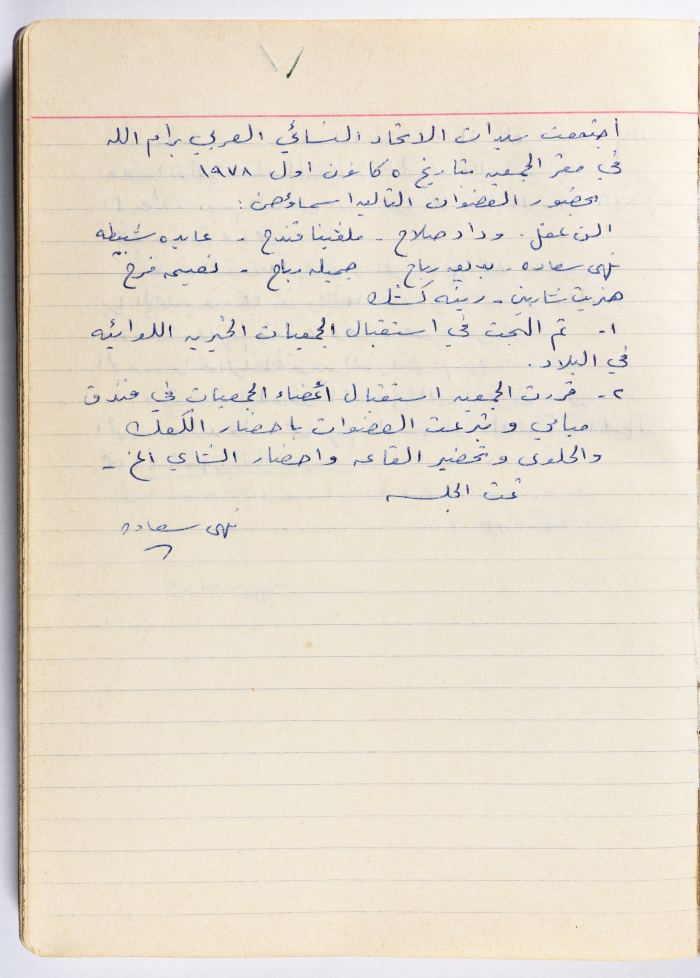 أجتمعت سيدات الاتحاد النسائي العربي برام الله
في مقر الجمعيه بتاريخ ٥ كانون اول ١٩٧٨
بحضور العضوات التاليه اسماؤهن :
الن عقل . وداد صلاح - ملفينا قندح - عايده شبيطه
نهى سعاده - بديعه رباح جميله رباح - نعيمه فرح
هنريت شاهين - رينه كشك
١ - تم البحث في استقبال الجمعيات الخيريه اللوائيه
في البلاد .
٢ - قررت الجمعيه استقبال أعضاء الجمعيات في فندق
ميامي وتبرعت العضوات باحضار الكعك
والحلوى وتحضير القاعه واحضار الشاي الخ -
تمت الجلسه
نهى سعاده